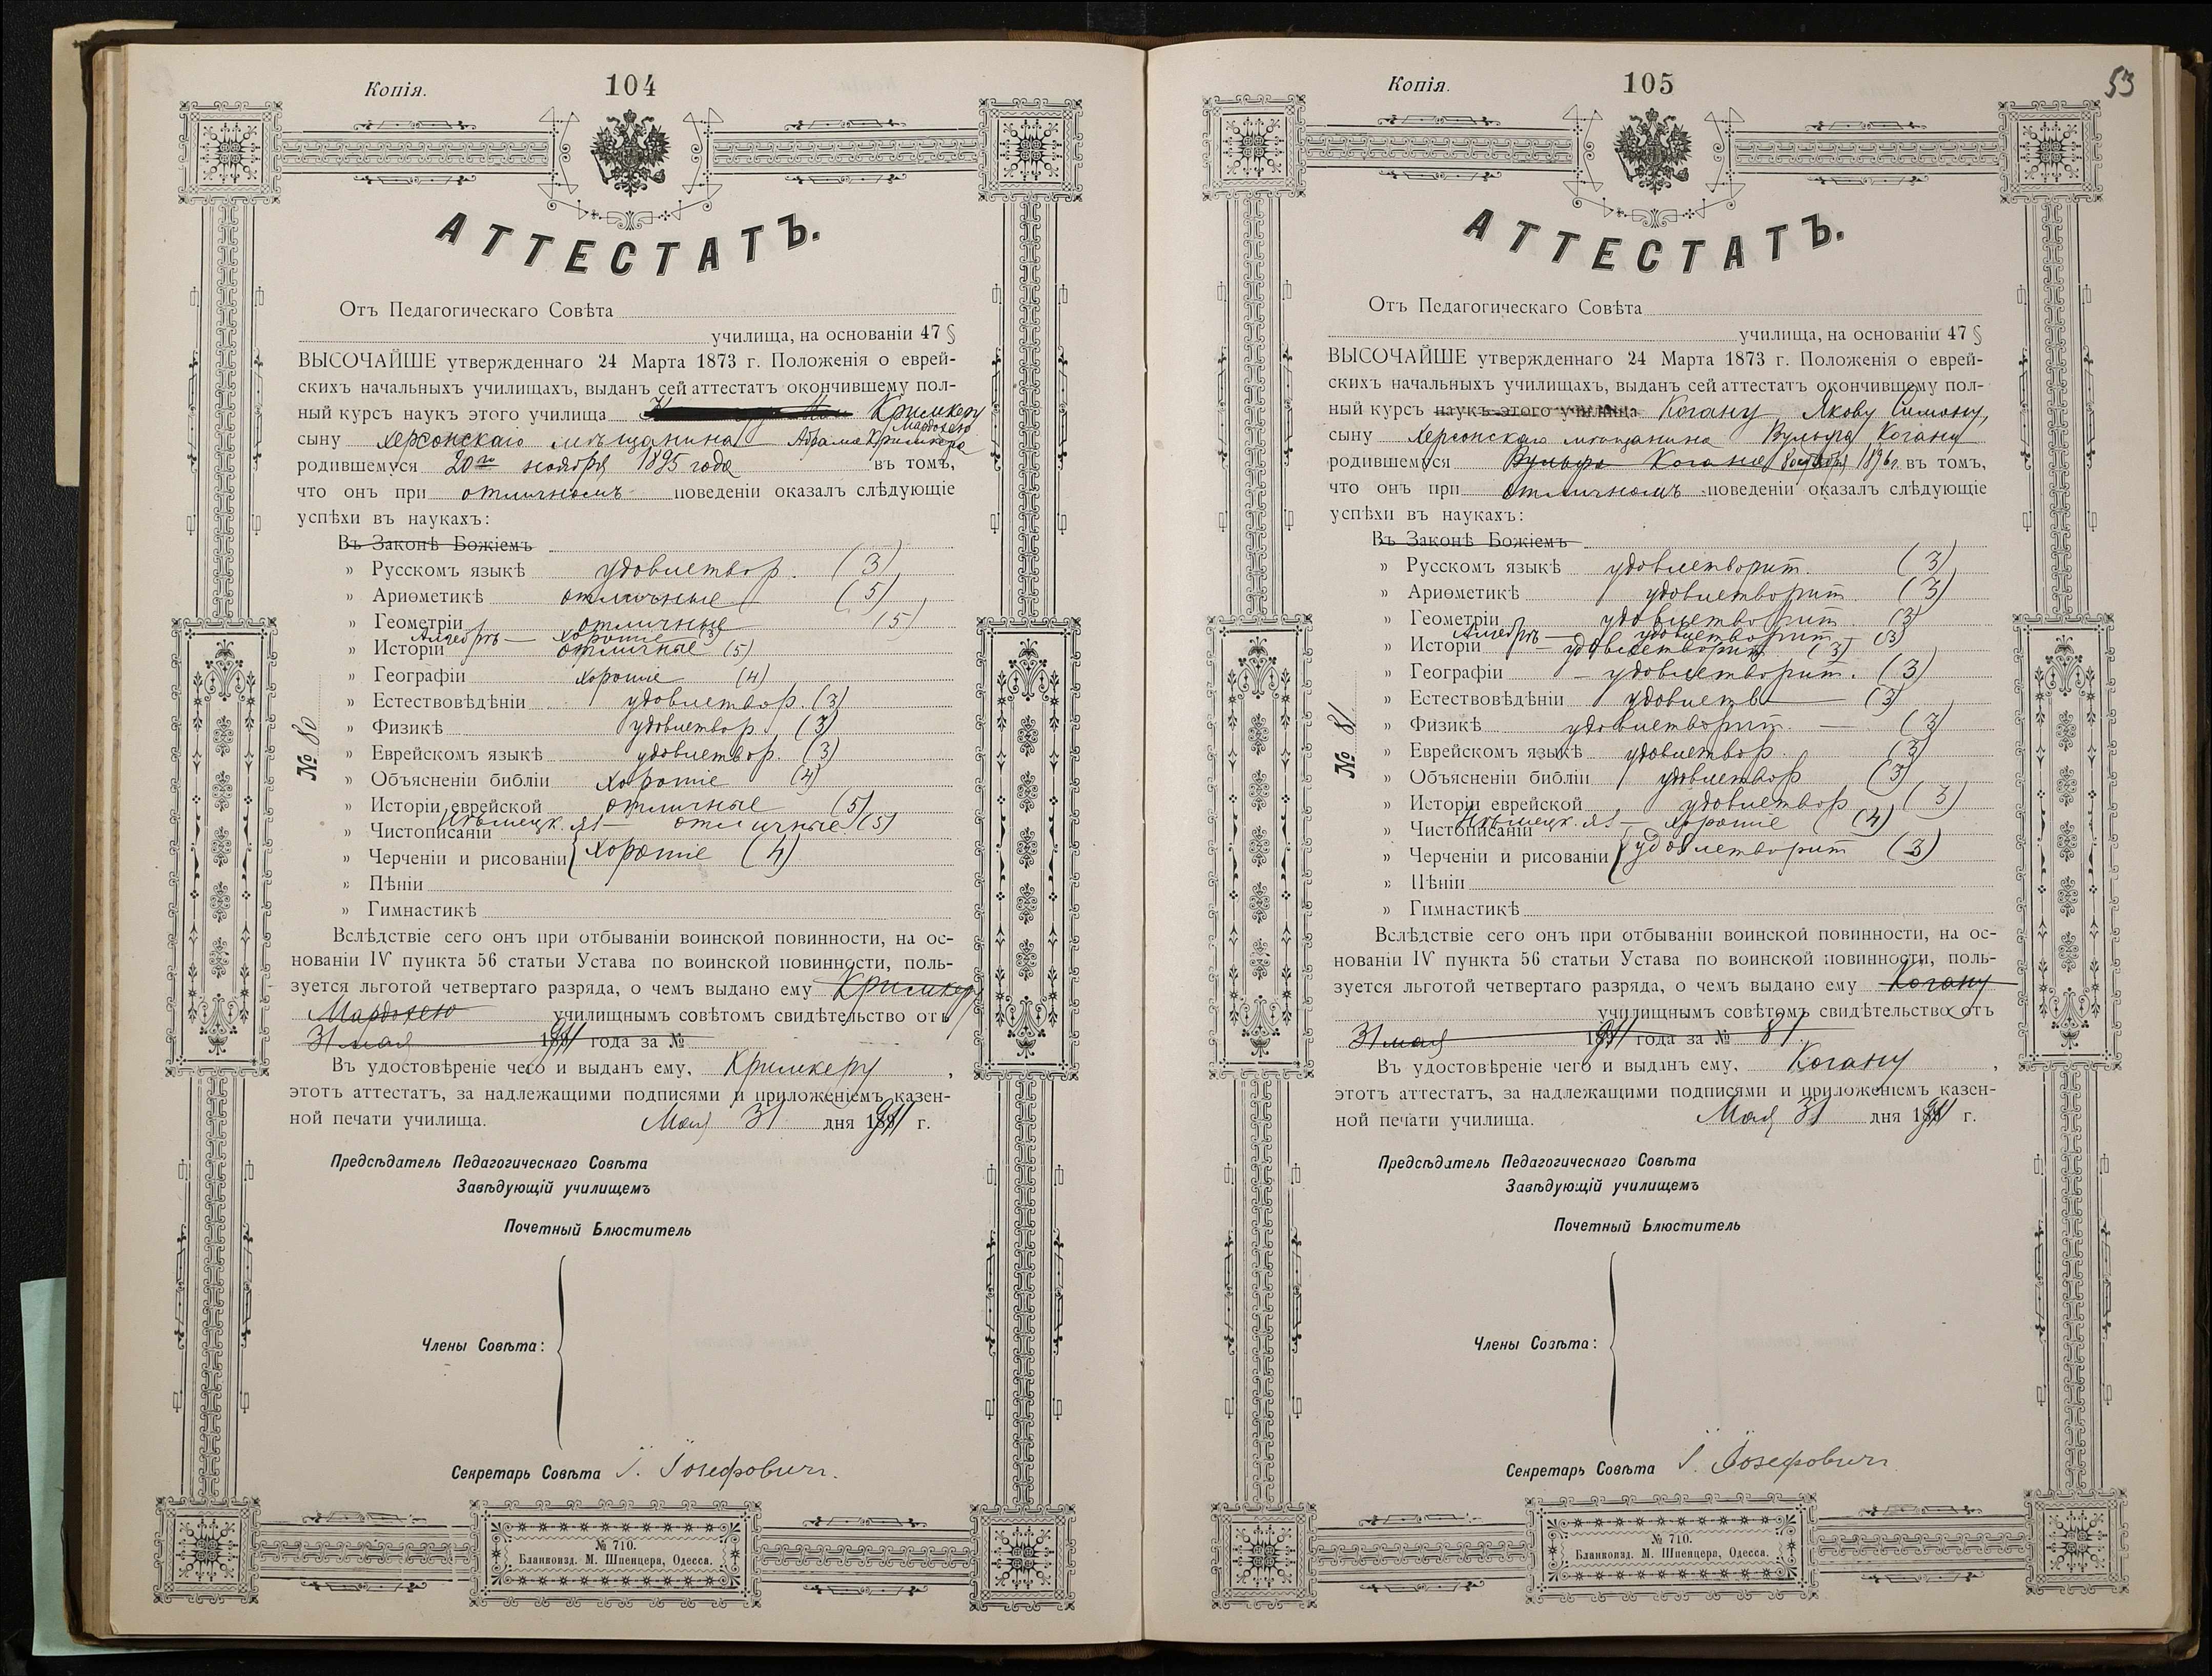 Копія.
104
АТТЕСТАТЪ.
Отъ Педагогическаго Совѣта
училища, на основаніи 47 §
ВЫСОЧАЙШЕ утвержденнаго 24 Марта 1873 г. Положенія о еврей-
скихъ начальныхъ училищахъ, выданъ сей аттестатъ окончившему пол-
ный курсъ наукъ этого училища Кримкеру
Мардохею
сыну херсонскаго мѣщанина Абрама Кримкера
родившемуся 20го ноября 1895 года въ томъ,
что онъ при отличномъ поведеніи оказалъ слѣдующіе
успѣхи въ наукахъ:
Въ Законѣ Божіемъ
» Русскомъ языкѣ удовлетвор. (3)
» Ариѳметикѣ отличные (5)
» Геометріи отличные (5)
Алгебрѣ — хорошіе
» Исторіи отличные (5)
» Географіи хорошіе (4)
» Естествовѣдѣніи удовлетвор. (3)
» Физикѣ удовлетвор. (3)
» Еврейскомъ языкѣ удовлетвор. (3)
» Объясненіи библіи хорошіе (4)
» Исторіи еврейской отличные (5)
Нѣмецк. яз — отличные (5)
» Чистописаніи
» Черченіи и рисованіи хорошіе (4)
» Пѣніи
» Гимнастикѣ
№ 80
Вслѣдствіе сего онъ при отбываніи воинской повинности, на ос-
нованіи IV пункта 56 статьи Устава по воинской повинности, поль-
зуется льготой четвертаго разряда, о чемъ выдано ему Кримкеру
Мардохею училищнымъ совѣтомъ свидѣтельство отъ
31 мая 1911 года за №
Въ удостовѣреніе чего и выданъ ему, Кримкеру,
этотъ аттестатъ, за надлежащими подписями и приложеніемъ казен-
ной печати училища. Мая 31 дня 1911 г.
Предсѣдатель Педагогическаго Совѣта
Завѣдующій училищемъ
Почетный Блюститель
Члены Совѣта:
Секретарь Совѣта І. Іозефовичъ.
№ 710.
Бланкоизд. М. Шпенцера, Одесса.
Копія.
105
53
АТТЕСТАТЪ.
Отъ Педагогическаго Совѣта
училища, на основаніи 47 §
ВЫСОЧАЙШЕ утвержденнаго 24 Марта 1873 г. Положенія о еврей-
скихъ начальныхъ училищахъ, выданъ сей аттестатъ окончившему пол-
ный курсъ наукъ этого училища Когану Якову Симону,
сыну херсонскаго мѣщанина Вульфа Когану
родившемуся Вульфа Когана 8 октября 1896 г. въ томъ,
что онъ при отличномъ поведеніи оказалъ слѣдующіе
успѣхи въ наукахъ:
Въ Законѣ Божіемъ
» Русскомъ языкѣ удовлетворит. (3)
» Ариѳметикѣ удовлетворит. (3)
» Геометріи удовлетворит. (3)
Алгебрѣ — удовлетворит — (3)
» Исторіи — удовлетворит (3)
» Географіи — удовлетворит. (3)
» Естествовѣдѣніи удовлетв — (3)
» Физикѣ удовлетворит. — (3)
» Еврейскомъ языкѣ удовлетвор. (3)
» Объясненіи библіи удовлетвор (3)
» Исторіи еврейской удовлетвор (3)
Нѣмецк. яз — хорошіе (4)
» Чистописаніи
» Черченіи и рисованіи удовлетворит (3)
» Пѣніи
» Гимнастикѣ
№ 81
Вслѣдствіе сего онъ при отбываніи воинской повинности, на ос-
нованіи IV пункта 56 статьи Устава по воинской повинности, поль-
зуется льготой четвертаго разряда, о чемъ выдано ему Когану
училищнымъ совѣтомъ свидѣтельство отъ
31 мая 1911 года за № 81.
Въ удостовѣреніе чего и выданъ ему, Когану,
этотъ аттестатъ, за надлежащими подписями и приложеніемъ казен-
ной печати училища. Мая 31 дня 1911 г.
Предсѣдатель Педагогическаго Совѣта
Завѣдующій училищемъ
Почетный Блюститель
Члены Совѣта:
Секретарь Совѣта І. Іозефовичъ.
№ 710.
Бланкоизд. М. Шпенцера, Одесса.